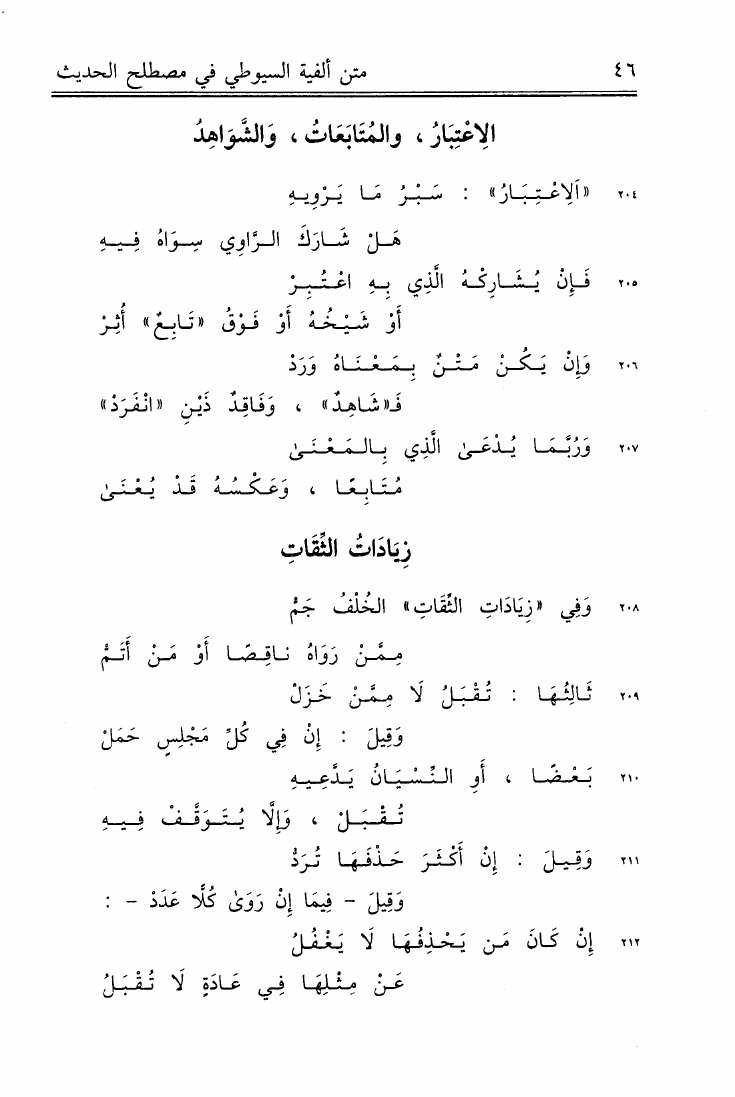 ٤٦ متن ألفية السيوطي في مصطلح الحديث
الِاعْتِبَارُ ، والمُتَابَعَاتُ ، وَالشَّوَاهِدُ
٢٠٤ «اَلِاعْتِبَارُ» : سَبْرُ مَا يَرْوِيهِ
هَلْ شَارَكَ الرَّاوِي سِوَاهُ فِيهِ
٢٠٥ فَإِنْ يُشَارِكْهُ الَّذِي بِهِ اعْتُبِرْ
أَوْ شَيْخُهُ أَوْ فَوْقُ «تَابِعٌ» أُثِرْ
٢٠٦ وَإِنْ يَكُنْ مَتْنٌ بِمَعْنَاهُ وَرَدْ
فَـ«شَاهِدٌ» ، وَفَاقِدٌ ذَيْنِ «انْفَرَدْ»
٢٠٧ وَرُبَّمَا يُدْعَىٰ الَّذِي بِالمَعْنَىٰ
مُتَابِعًا ، وَعَكْسُهُ قَدْ يُعْنَىٰ
زِيَادَاتُ الثِّقَاتِ
٢٠٨ وَفِي «زِيَادَاتِ الثِّقَاتِ» الخُلْفُ جَمّْ
مِمَّنْ رَوَاهُ نَاقِصًا أَوْ مَنْ أَتَمّْ
٢٠٩ ثَالِثُهَا : تُقْبَلُ لَا مِمَّنْ خَزَلْ
وَقِيلَ : إِنْ فِي كُلِّ مَجْلِسٍ حَمَلْ
٢١٠ بَعْضًا ، أَوِ النِّسْيَانُ يَدَّعِيهِ
تُقْبَلْ ، وَإِلَّا يُتَوَقَّفْ فِيهِ
٢١١ وَقِيلَ : إِنْ أَكْثَرَ حَذْفَهَا تُرَدّْ
وَقِيلَ - فِيمَا إِنْ رَوَىٰ كُلًّا عَدَدْ - :
٢١٢ إِنْ كَانَ مَن يَحْذِفُهَا لَا يَغْفُلُ
عَنْ مِثْلِهَا فِي عَادَةٍ لَا تُقْبَلُ